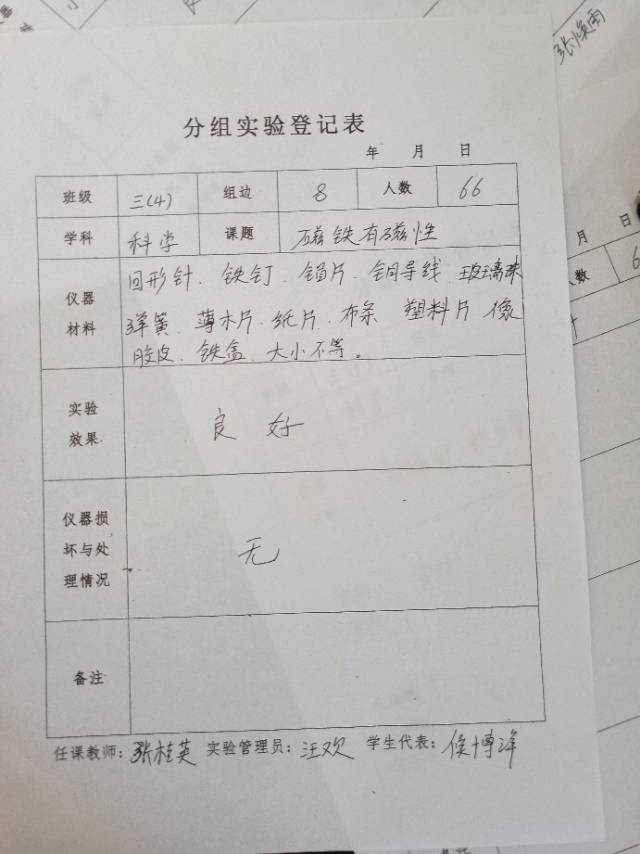 张焕雨
分组实验登记表
年 月 日
班级 三(4) 组边 8 人数 66
学科 科学 课题 磁铁有磁性
仪器材料 回形针、铁钉、铝片、铜导线、玻璃珠
弹簧、薄木片、纸片、布条 塑料片 像
胶皮、铁盒、大小不等。
实验效果 良好
仪器损坏与处理情况 无
备注
任课教师：张桂英 实验管理员：汪欢 学生代表：侯博洋
月 日
人数 6